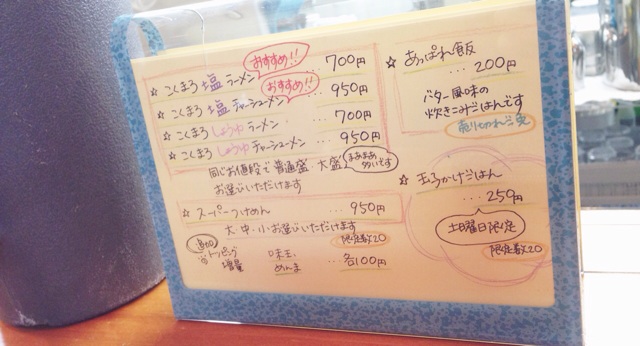 おすすめ!!
☆ こくまろ 塩 ラーメン ... 700円
おすすめ!!
☆ こくまろ 塩 チャーシューメン ... 950円
☆ こくまろ しょうゆ ラーメン ... 700円
☆ こくまろ しょうゆ チャーシューメン ... 950円
同じお値段で 普通盛 大盛 まあまあ多いです
お選びいただけます
☆ スーパーつけめん ... 950円
大・中・小 お選びいただけます
限定数20
追加
※トッピング 味玉、 ... 各100円
増量 めんま
☆ あっぱれ飯
... 200円
バター風味の
炊きこみごはんです
売り切れご免
☆ 玉子かけごはん
... 250円
土日曜日限定
限定数20